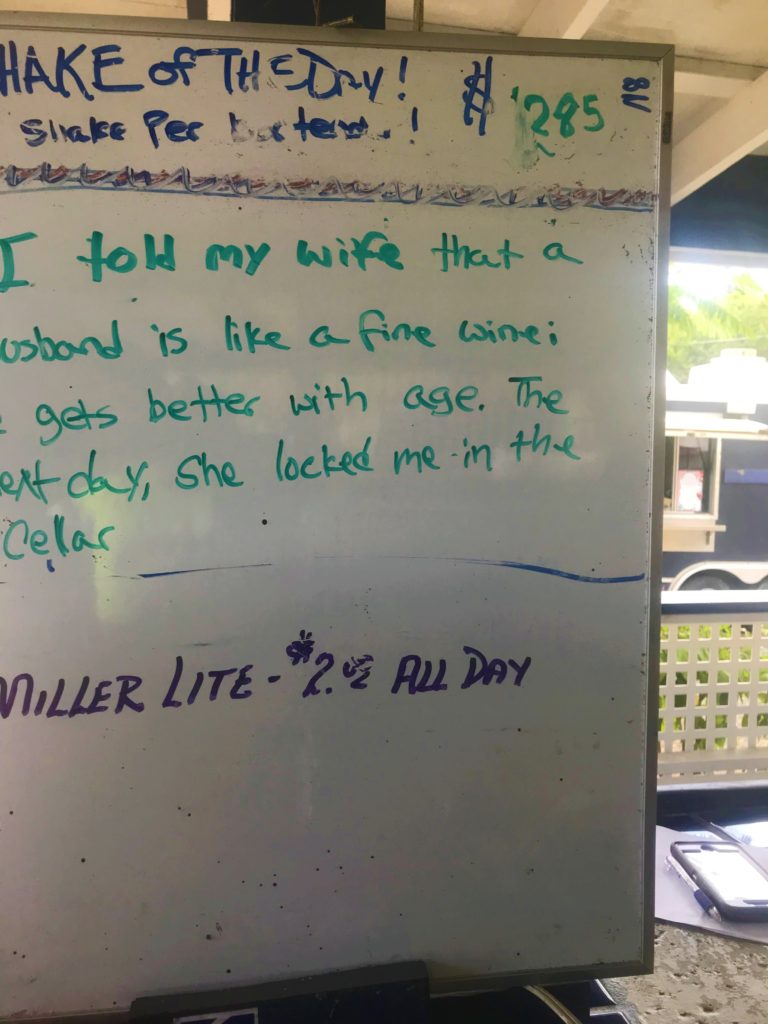 HAKE of THE DAY! $ 1285
Shake Per
I told my wife that a
usband is like a fine wine;
e gets better with age. The
ext day, she locked me in the
Cellar
MILLER LITE - $2. ALL DAY